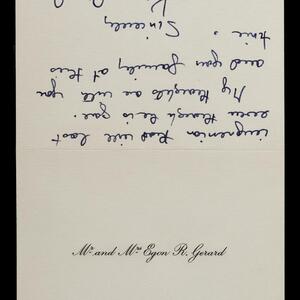 impression that will last
even though he is gone.
My thoughts are with you
and your family at this
time.
Sincerely,
Mr. and Mrs. Egon R. Gerard